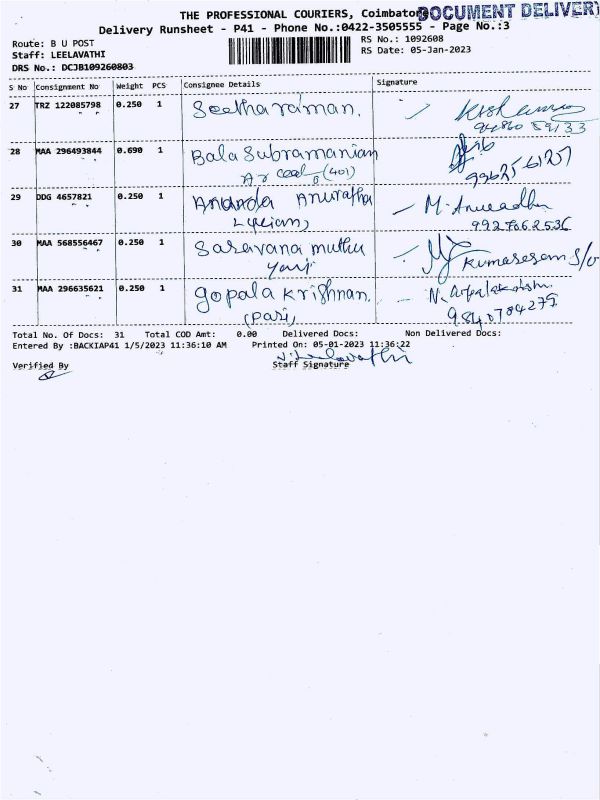 THE PROFESSIONAL COURIERS, Coimbator
DOCUMENT DELIVERY
Delivery Runsheet - P41 - Phone No.:0422-3505555 - Page No.:3
Route: B U POST
RS No.: 1092608
Staff: LEELAVATHI
RS Date: 05-Jan-2023
DRS No.: DCJB109260803
S No Consignment No Weight PCS Consignee Details Signature
27 TRZ 122085798 0.250 1 Seetharaman.
94860 59133
28 MAA 296493844 0.690 1 Bala Subramanian
(401)
996256127
29 DDG 4657821 0.250 1 Ananda Anuratha M. Anuradha
9927062536
30 MAA 568556467 0.250 1 Saravana muthu Kumaresam S/o
31 MAA 296635621 0.250 1 gopala krishnan.
(pari) 9840784279
Total No. Of Docs: 31 Total COD Amt: 0.00 Delivered Docs: Non Delivered Docs:
Entered By :BACKIAP41 1/5/2023 11:36:10 AM Printed On: 05-01-2023 11:36:22
Verified By Staff Signature